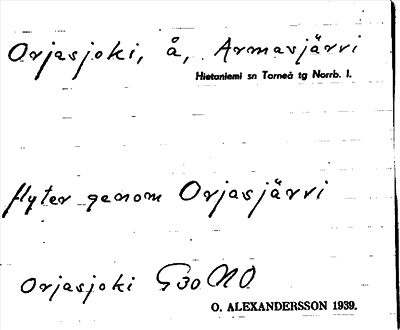 Orjasjoki, å, Armasjärvi
Hietaniemi sn Torneå tg Norrb. l.
flyter genom Orjasjärvi
Orjasjoki G30 NO
O. ALEXANDERSSON 1939.